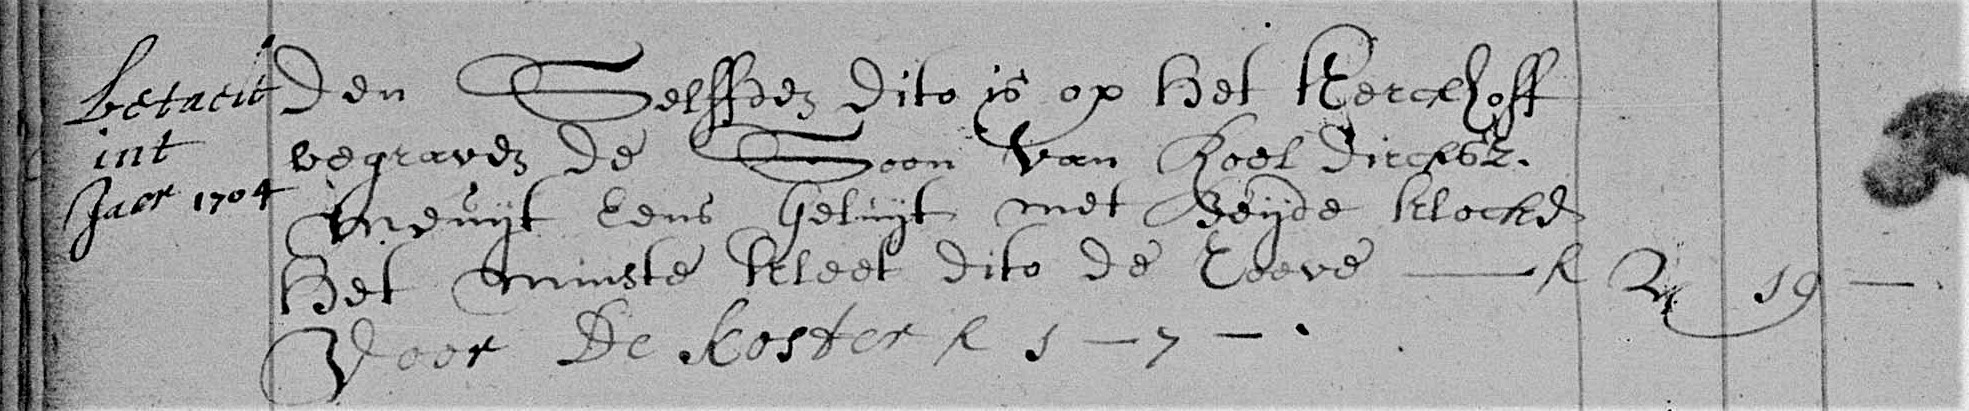 betaelt
int
Jaer 1704
den Selffden dito is op het Kerckhoff
begraven de Soon van Roel Dircksz.
Meuijt Eens Geluijt met Beijde klocke
Het minste kleet dito de Reeve — f 2 19 —
Voor De koster f 1 — 7 —